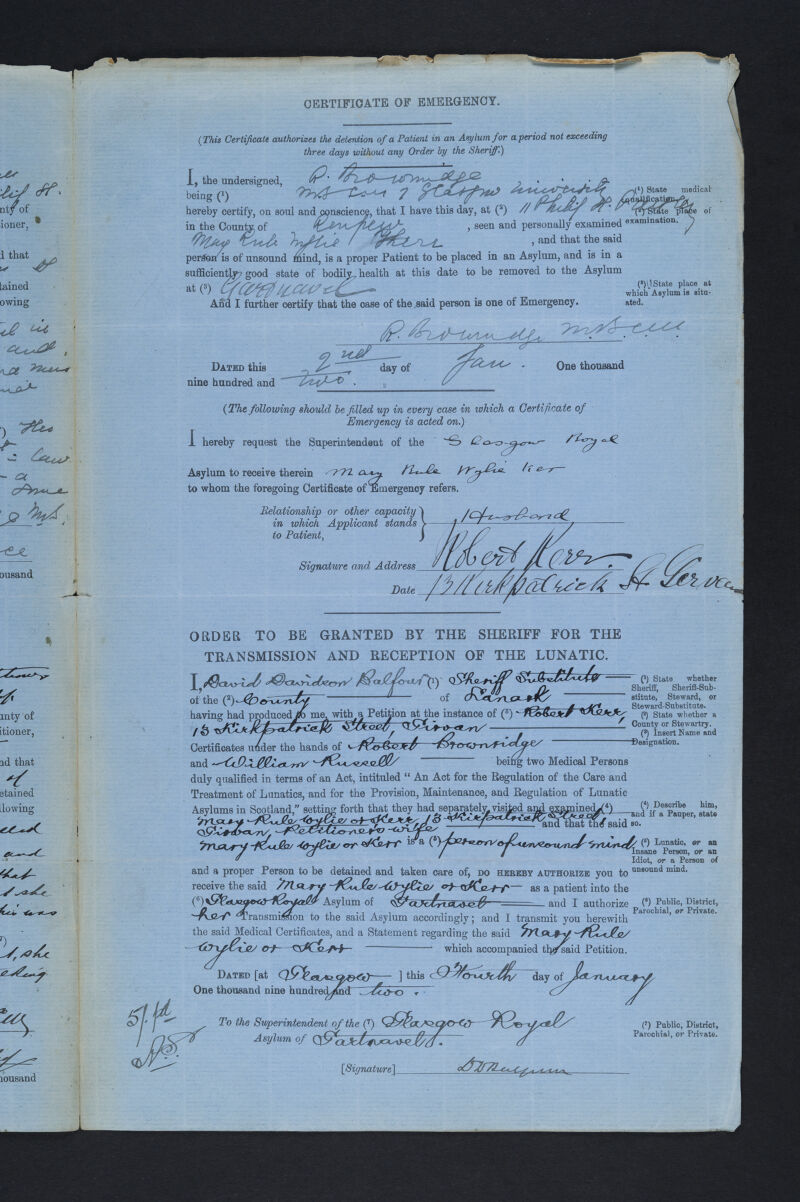 CERTIFICATE OF EMERGENCY.
(This Certificate authorizes the detention of a Patient in an Asylum for a period not exceeding
three days without any Order by the Sheriff.)
I, the undersigned, R. Brownridge
being (¹) Glasgow University
(¹) State medical
qualification.
hereby certify, on soul and conscience, that I have this day, at (²) 11 Philip St.
(²) State place of
examination.
in the County of , seen and personally examined
Mary Rule Wylie Kerr , and that the said
person is of unsound mind, is a proper Patient to be placed in an Asylum, and is in a
sufficiently good state of bodily health at this date to be removed to the Asylum
at (³) Gartnavel
(³) State place at
which Asylum is situ-
ated.
And I further certify that the case of the said person is one of Emergency.
R. Brownridge
DATED this 2nd day of Jan. One thousand
nine hundred and two.
(The following should be filled up in every case in which a Certificate of
Emergency is acted on.)
I hereby request the Superintendent of the Glasgow Royal
Asylum to receive therein Mary Rule Wylie Kerr
to whom the foregoing Certificate of Emergency refers.
Relationship or other capacity
in which Applicant stands
to Patient,
Husband
Signature and Address Robert Kerr.
Date 13 Kirkpatrick St Girvan
ORDER TO BE GRANTED BY THE SHERIFF FOR THE
TRANSMISSION AND RECEPTION OF THE LUNATIC.
I, David Davidson Balfour (¹) Sheriff Substitute
of the (²) County of Lanark
having had produced to me, with a Petition at the instance of (³) Robert Kerr,
13 Kirkpatrick Street, Girvan
Certificates under the hands of Robert Brownridge
and William Russell being two Medical Persons
(¹) State whether
Sheriff, Sheriff-Sub-
stitute, Steward, or
Steward-Substitute.
(²) State whether a
County or Stewartry.
(³) Insert Name and
Designation.
duly qualified in terms of an Act, intituled "An Act for the Regulation of the Care and
Treatment of Lunatics, and for the Provision, Maintenance, and Regulation of Lunatic
Asylums in Scotland," setting forth that they had separately visited and examined (⁴)
Mary Rule Wylie or Kerr, 13 Kirkpatrick Street,
Girvan, Petitioner's wife and that the said
(⁴) Describe him,
and if a Pauper, state
so.
Mary Rule Wylie or Kerr is a (⁵) person of unsound mind
(⁵) Lunatic, or an
Insane Person, or an
Idiot, or a Person of
unsound mind.
and a proper Person to be detained and taken care of, DO HEREBY AUTHORIZE you to
receive the said Mary Rule Wylie or Kerr as a patient into the
(⁶) Glasgow Royal Asylum of Gartnavel and I authorize
(⁶) Public, District,
Parochial, or Private.
her Transmission to the said Asylum accordingly; and I transmit you herewith
the said Medical Certificates, and a Statement regarding the said Mary Rule
Wylie or Kerr which accompanied the said Petition.
DATED [at Glasgow ] this Fourth day of January
One thousand nine hundred and two.
To the Superintendent of the (⁷) Glasgow Royal
Asylum of Gartnavel.
(⁷) Public, District,
Parochial, or Private.
[Signature] DDBalfour